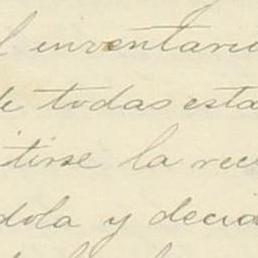 l inventario
de todas esta
itirse la reu
dola y decid